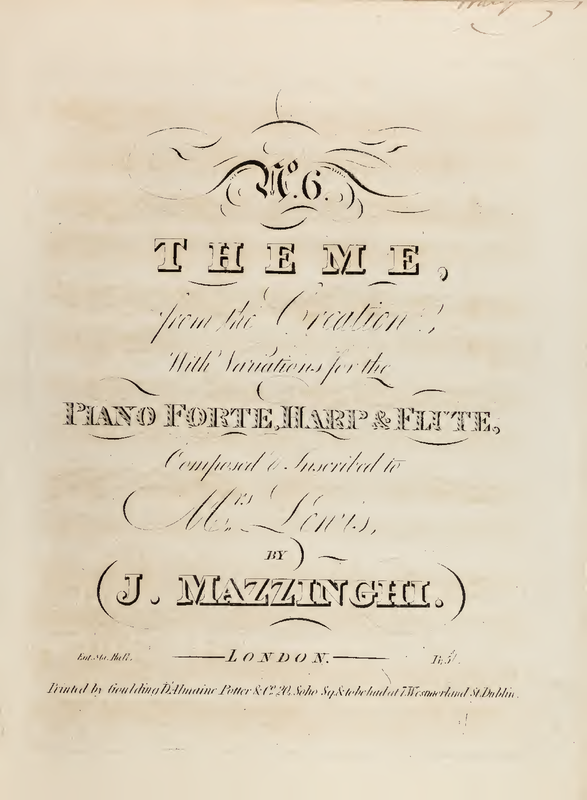 No. 6.
THEME,
from the Creation,
With Variations for the
PIANO FORTE, HARP & FLUTE,
Composed & Inscribed to
Mrs. Lewis,
BY
J. MAZZINGHI.
Ent. Sta. Hall. LONDON. Pr. 5/.
Printed by Goulding D'Almaine Potter & Co. 20, Soho Sq. & to be had at 7 Westmorland St. Dublin.